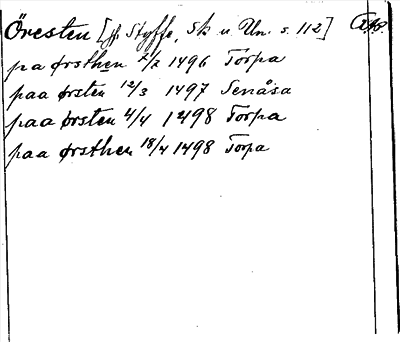 Öresten [jf. Styffe, Sk u Un. s. 112]
pa ørsthen 2/2 1496 Torpa
paa ørsten 12/3 1497 Senåsa
paa ørsten 4/4 1498 Torpa
paa ørsthen 18/4 1498 Torpa